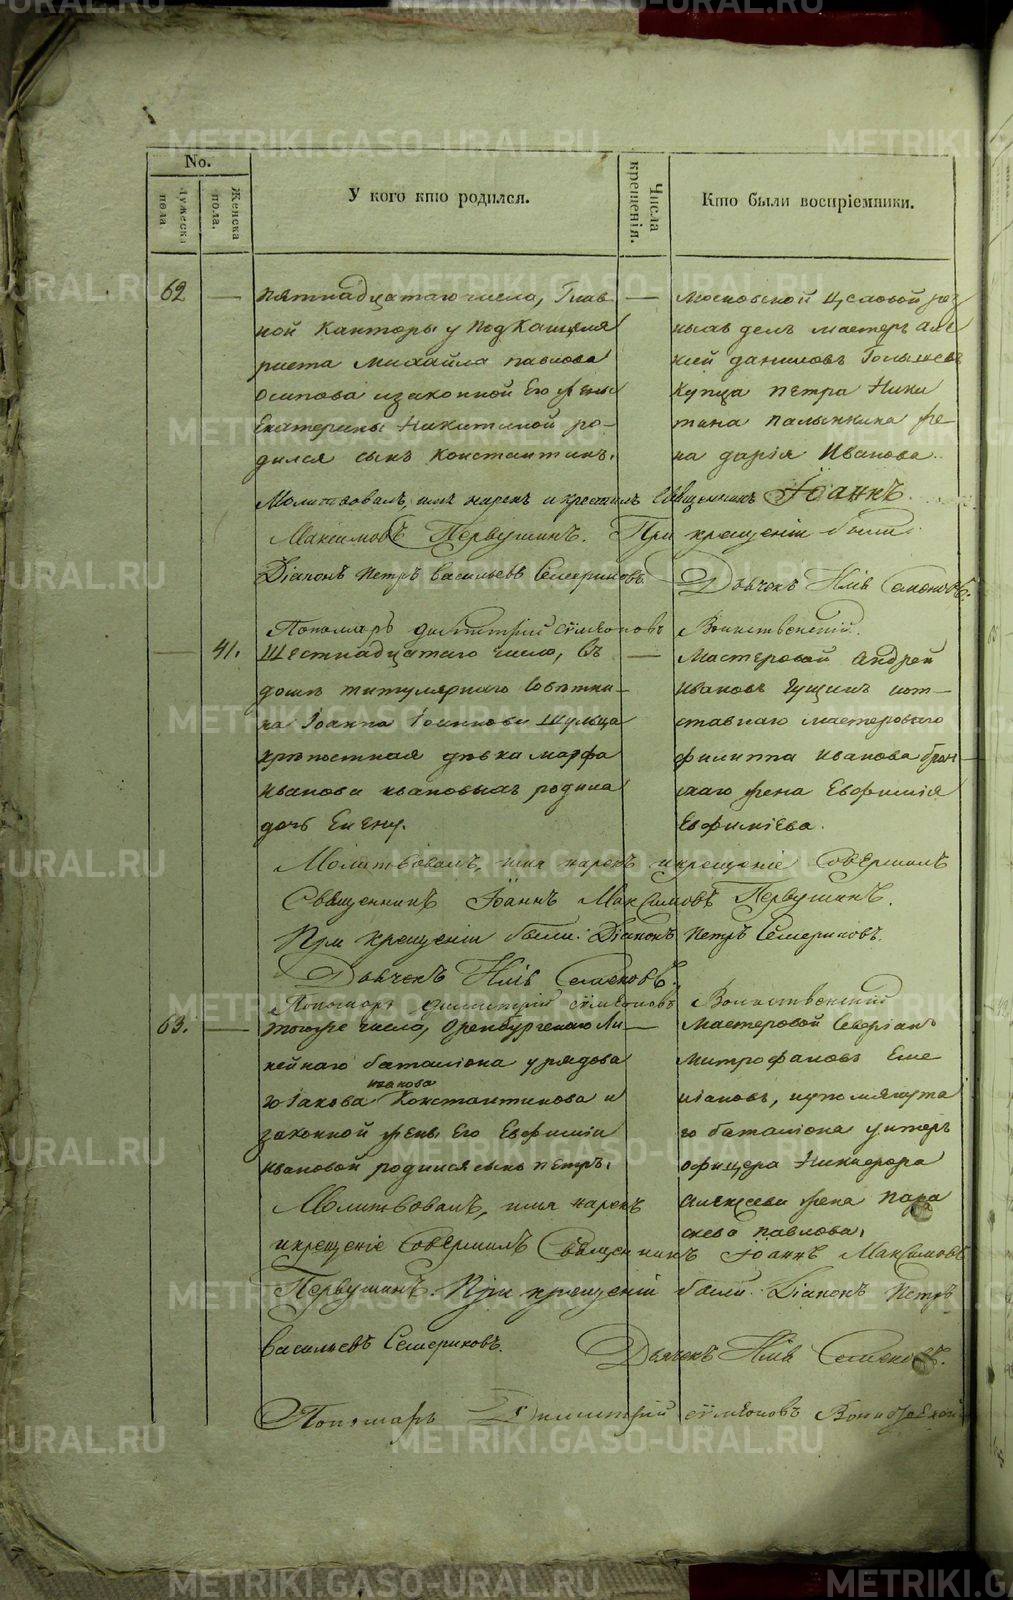 No.
Мужеска пола
Женска пола.
У кого кто родился.
Числа крещенія.
Кто были воспріемники.
62
пятнадцатаго числа, Глав
ной Канторы у Подканцеля
риста Михайла Павлова
Осипова изаконной Его жены
Екатерины Никитиной ро-
дился сынъ Константинъ.
Московской Цеховой
ныхъ делъ мастеръ Але
ксей Даниловъ
Купца Петра Ники
тина Палынкина же-
на Дарія Иванова.
Молитвовалъ, имя нарекъ и крестилъ Священникъ Іоаннъ
Максимовъ Первушинъ. При крещеніи были:
Діаконъ Петръ Васильевъ Семериковъ. Дьячекъ Илія Семеновъ.
Пономарь Димитрій Симеоновъ Воинственскій.
41.
Шестнадцатаго число, въ
доме титулярнаго Советни-
ка Іоанна Шульца
крѣпостная дѣвка Марфа
Иванова родила
дочь Елену.
Мастеровой Андрей
Ивановъ Гущинъ иот-
ставнаго мастероваго
Филиппа Иванова
жена Евфимія
Евфиміева.
Молитвовалъ, имя нарекъ икрещеніе Совершилъ
Священникъ Іоаннъ Максимовъ Первушинъ.
При крещеніи были: Діаконъ Петръ Семериковъ.
Дьячекъ Илія Семеновъ.
Пономарь Димитрій Симеоновъ Воинственскій
63.
тогоже число, Оренбургскаго Ли
нейнаго баталіона у рядова
го Іакова Иванова Константинова и
законной жены Его Евфиміи
Ивановой родился сынъ Петръ.
Мастеровой Северіанъ
Митрофановъ Еме
ліановъ, иупомянута
го баталіона унтеръ
офицера Никифора
Алексеева жена Пара
скева Павлова.
Молитвовалъ, имя нарекъ
икрещеніе Совершилъ Священникъ Іоаннъ Максимовъ
Первушинъ. При крещеніи были: Діаконъ Петръ
Васильевъ Семериковъ. Дьячекъ Илія Семеновъ.
Пономарь Димитрій Симеоновъ Воинственскій
METRIKI.GASO-URAL.RU